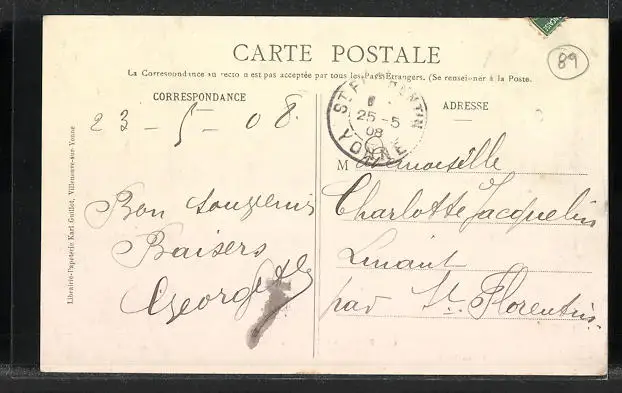 CARTE POSTALE
La Correspondance au recto n'est pas acceptée par tous les Pays Etrangers. (Se renseigner à la Poste.
89
CORRESPONDANCE
ADRESSE
23 - 5 - 08.
ST FLORENTIN
25 - 5
08
YONNE
Bon souvenir
Baisers
Mademoiselle
Charlotte Jacquelin
par St. Florentin.
Librairie-Papeterie Karl Guillot, Villeneuve-sur-Yonne